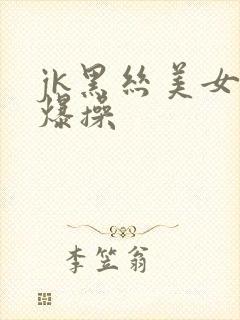 jk黑丝美女
爆操
李笠翁